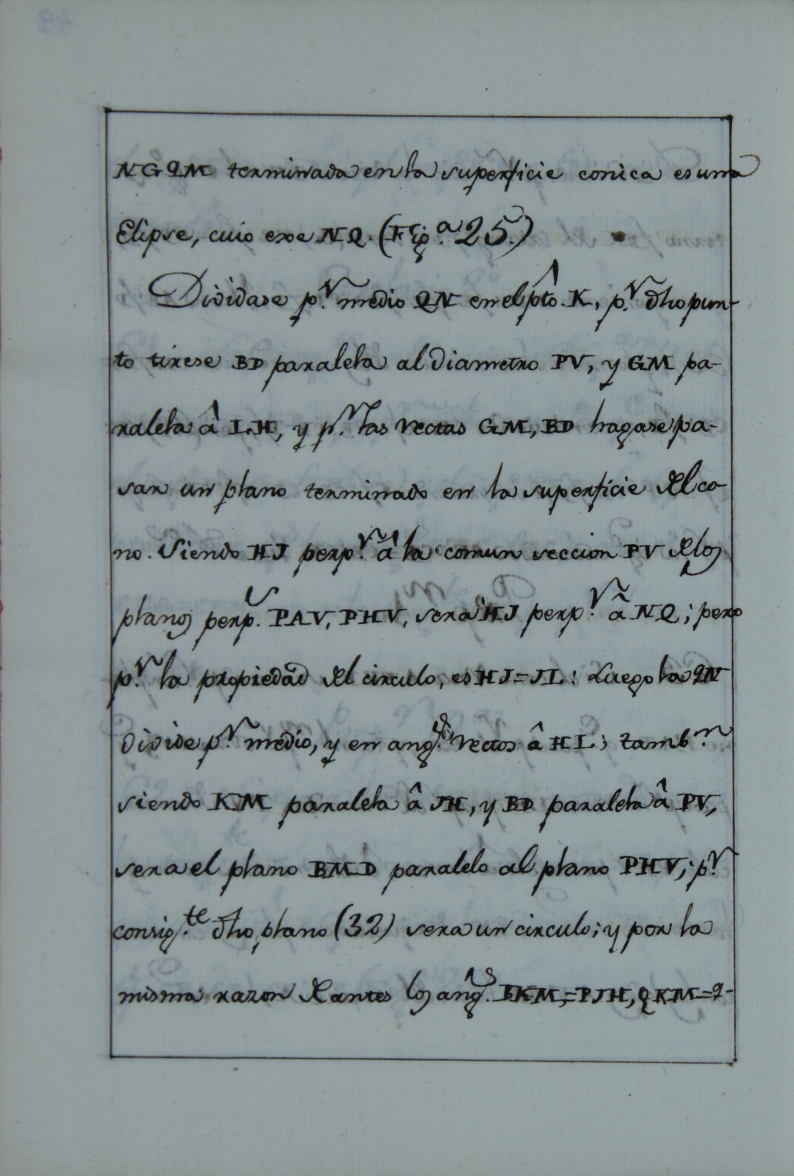 NGQM terminada en la superficie conica es una
Elipse, cuio exe NQ. (Fig.ª 25.)
Dividase p.ʳ medio QN en el pto. K, p.ʳ dho pun-
to tirese BD paralela al diametro PV, y GM pa-
ralela â LH, y p.ʳ las rectas GM, BD hagase pa-
sar un plano terminado en la superficie del co-
no. Siendo HJ perp.ʳ â la comun seccion PV de los
planos perp.ˢ PAV, PHV, sera HJ perp.ʳ â NQ; pero
p.ʳ la propiedad del circulo, es HJ=JL: Luego la QN
divide p.ʳ medio, y en ang.ˢ rectos â HL; tamb.ⁿ
siendo KM paralela â JH, y BD paralela â PV,
sera el plano BMD paralelo al plano PHV; p.ʳ
consig.ᵗᵉ dho plano (32) sera un circulo; y por la
misma razon de antes los ang.ˢ BKM,=PJH, QKM=Q-